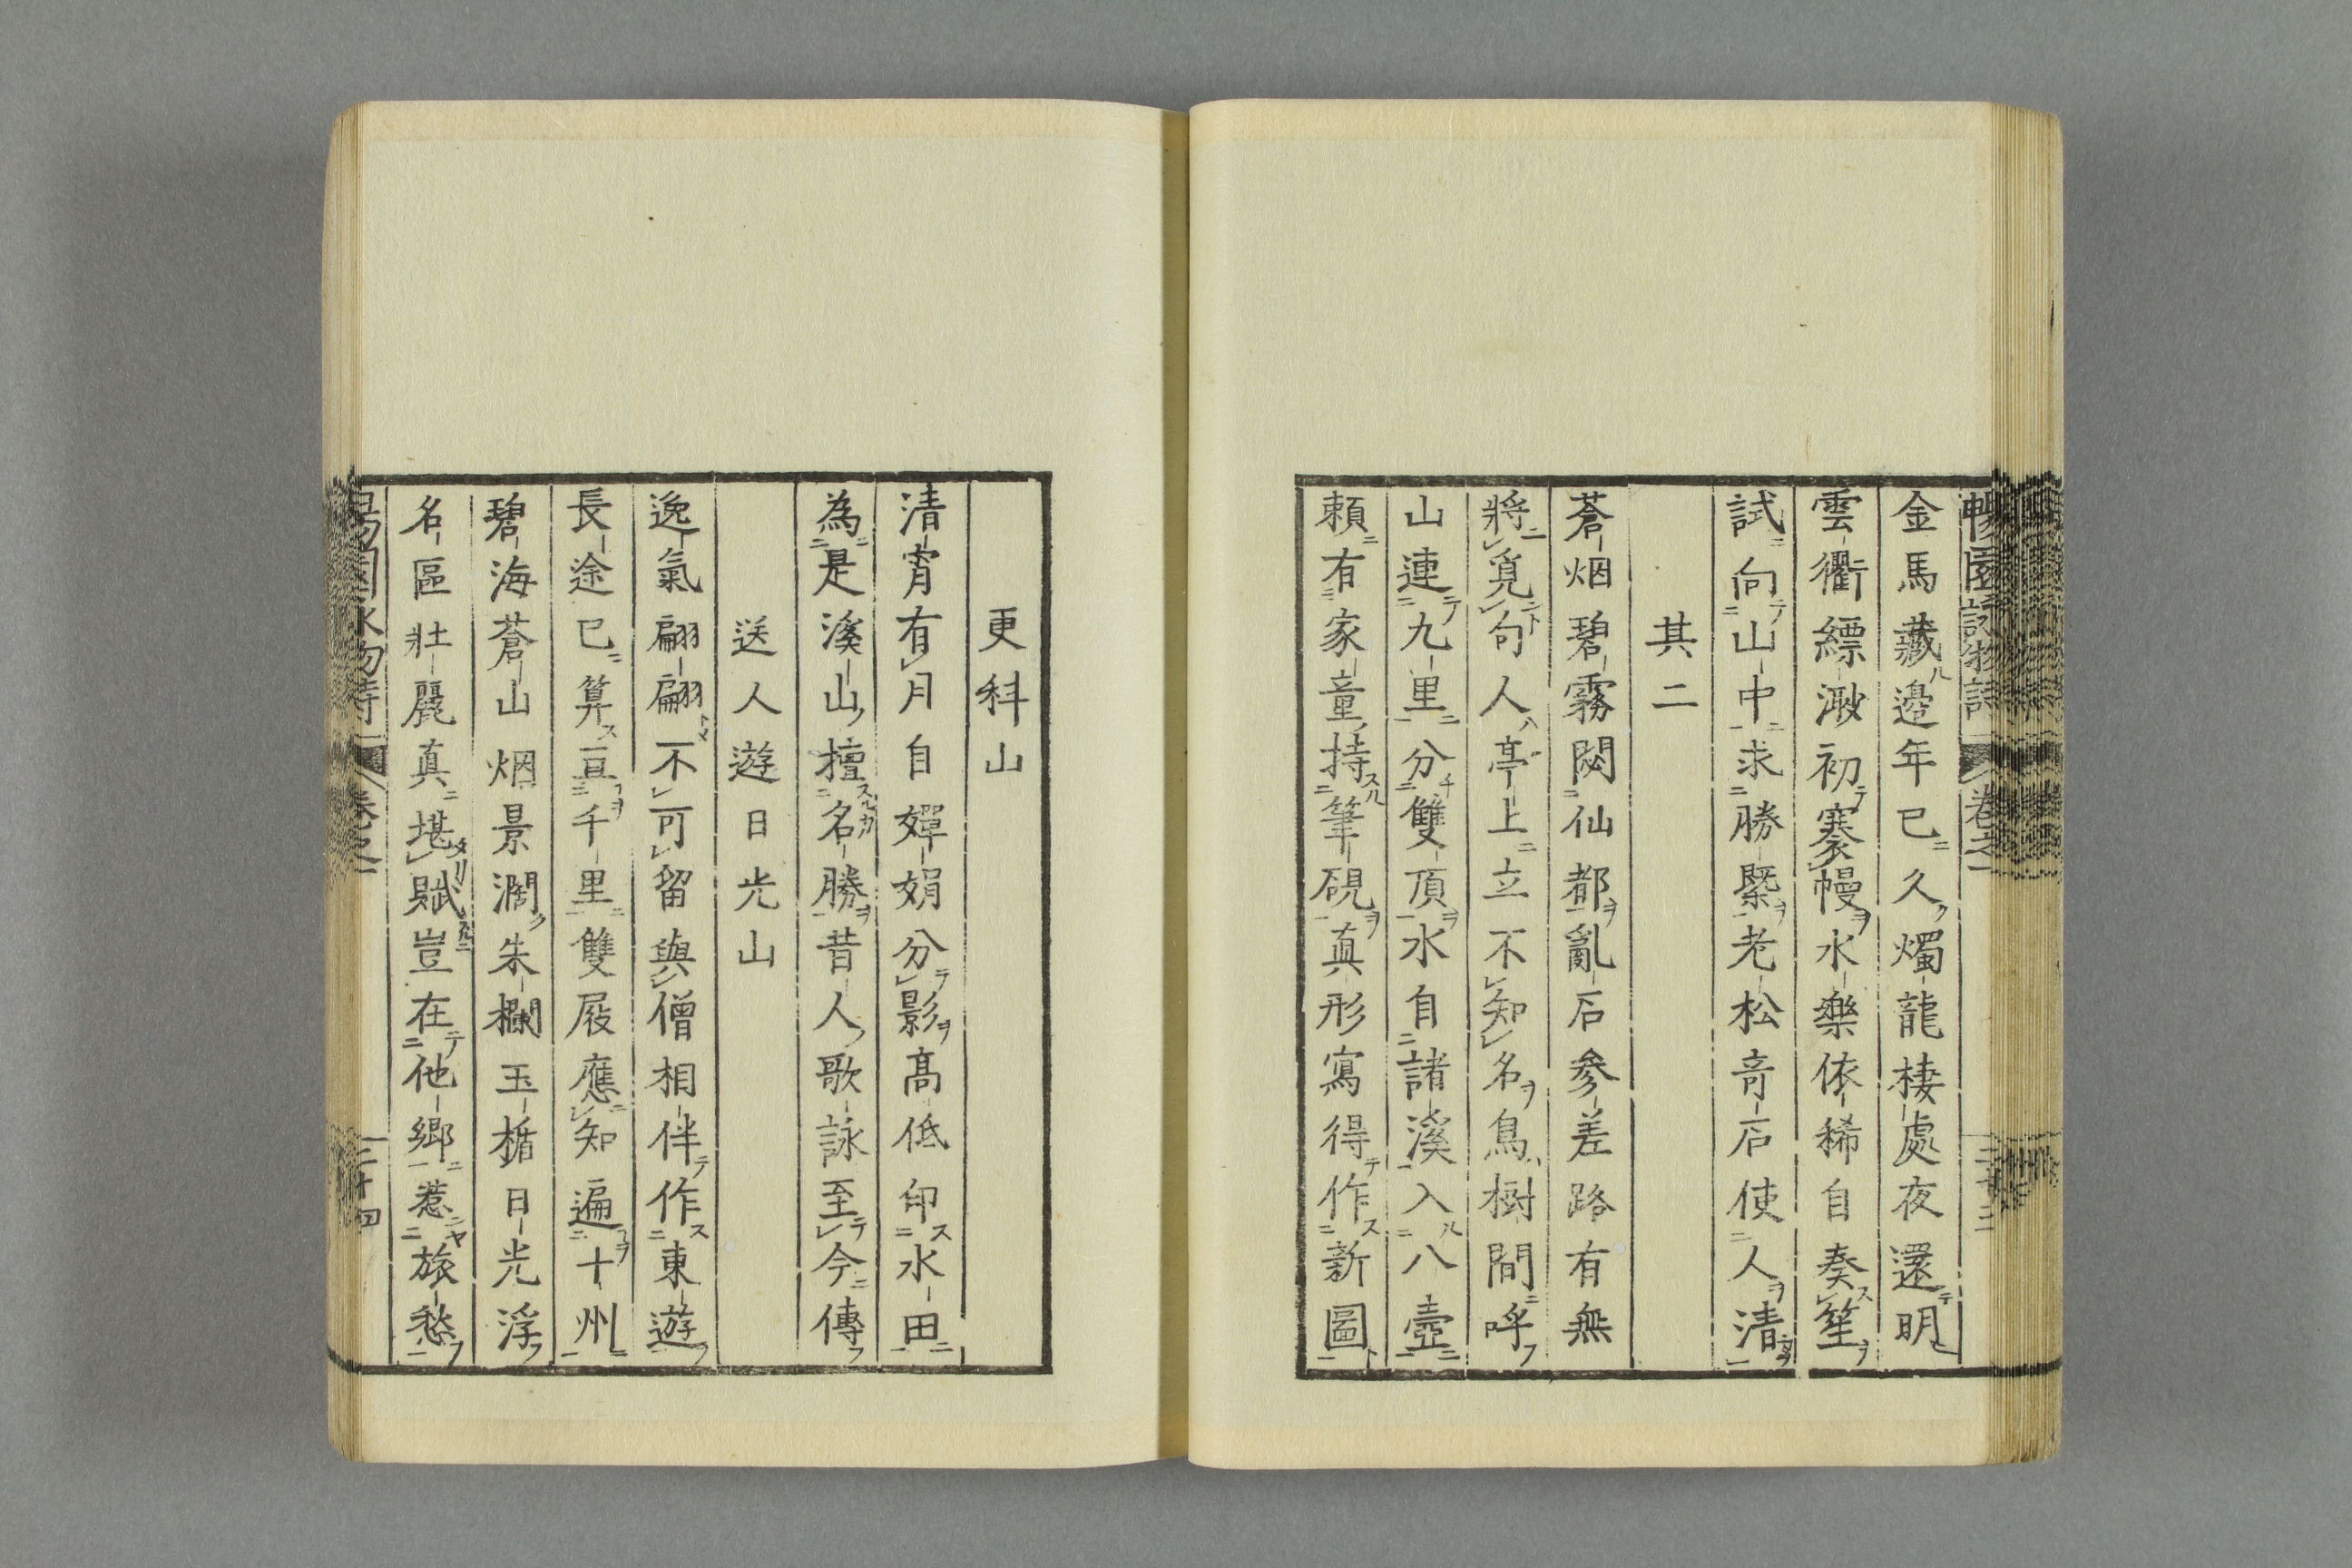 金馬藏邉年已久燭龍棲處夜還明
雲衢縹渺初褰幔水樂依稀自奏笙
試向山中求勝槩老松竒石使人清
其二
蒼烟碧霧閟仙都亂石參差路有無
將覓句人亭上立不知名鳥樹間呼
山連九里分雙頂水自諸溪入八壺
頼有家童持筆硯真形寫得作新圖
更科山
清宵有月自嬋娟分影髙低印水田
為是溪山擅名勝昔人歌詠至今傳
送人遊日光山
逸氣翩翩不可留與僧相伴作東遊
長途已算亘千里雙屐應知遍十州
碧海蒼山烟景濶朱欄玉楯日光浮
名區壯麗真堪賦豈在他鄉惹旅愁